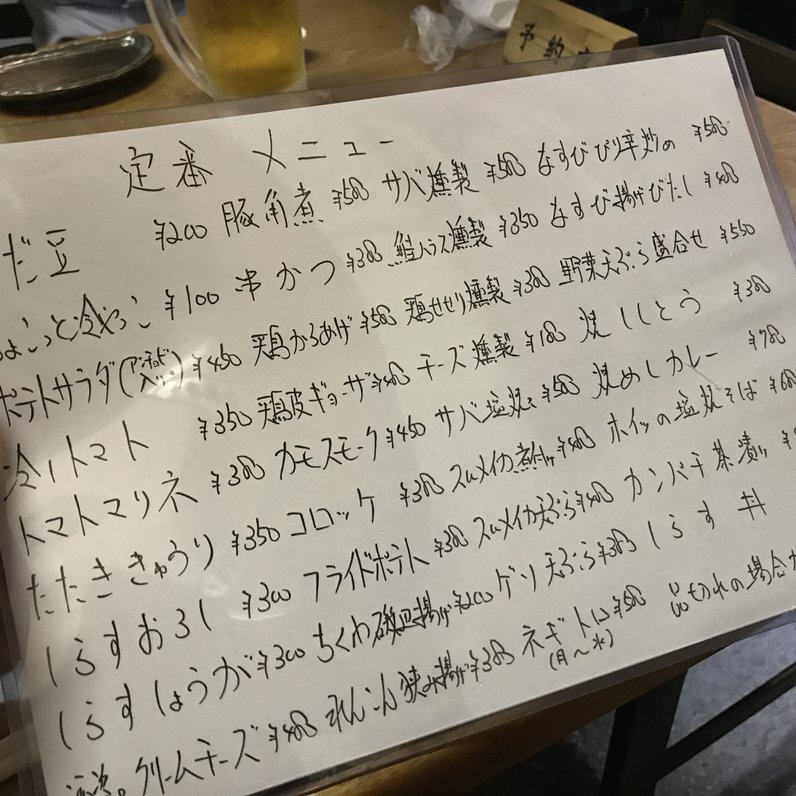 予約
定番 メニュー
だ豆 ¥200 豚角煮 ¥580 サバ燻製 ¥580 なすびぴり辛炒め ¥580
ちょこっと冷やっこ ¥100 串かつ ¥380 鮭ハラス燻製 ¥350 なすび揚げびたし ¥480
ポテトサラダ( ) ¥450 鶏からあげ ¥580 鶏せせり燻製 ¥380 野菜天ぷら盛合せ ¥550
冷トマト ¥350 鶏皮ギョーザ ¥480 チーズ燻製 ¥180 焼ししとう ¥380
トマトマリネ ¥380 カモスモーク ¥450 サバ塩焼 ¥580 焼めしカレー ¥780
たたききゅうり ¥350 コロッケ ¥380 スルメイカ煮付 ¥480 ホイッの塩焼そば
しらすおろし ¥300 フライドポテト ¥380 スルメイカ天ぷら ¥480 カンパチ茶漬け
しらすしょうが ¥300 ちくわ磯辺揚げ ¥200 ゲソ天ぷら ¥385 しらす丼
クリームチーズ ¥480 れんこん挟み揚げ ¥380 ネギトロ ¥580 品切れの場合が
(月〜水)